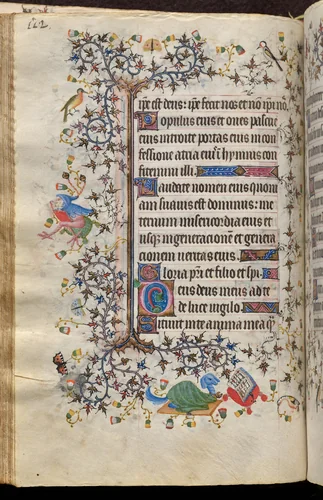 ip̄e est deus: ip̄e fecit nos et nō ip̄i nō.
Populus eius et oues pascue
eius introite portas eius in con
fessione atria eiꝰ ī hymnis con
fitemini illi.
Laudate nomen eius quoni
am suauis est dominus: in e
ternum misericordia eius et
usq; in generacionem et genera
cionem ueritas eius.
Gloria pr̄i et filio et spi.
Deus deus meus ad te
de luce vigilo.
Sitiuit in te anima mea q̄